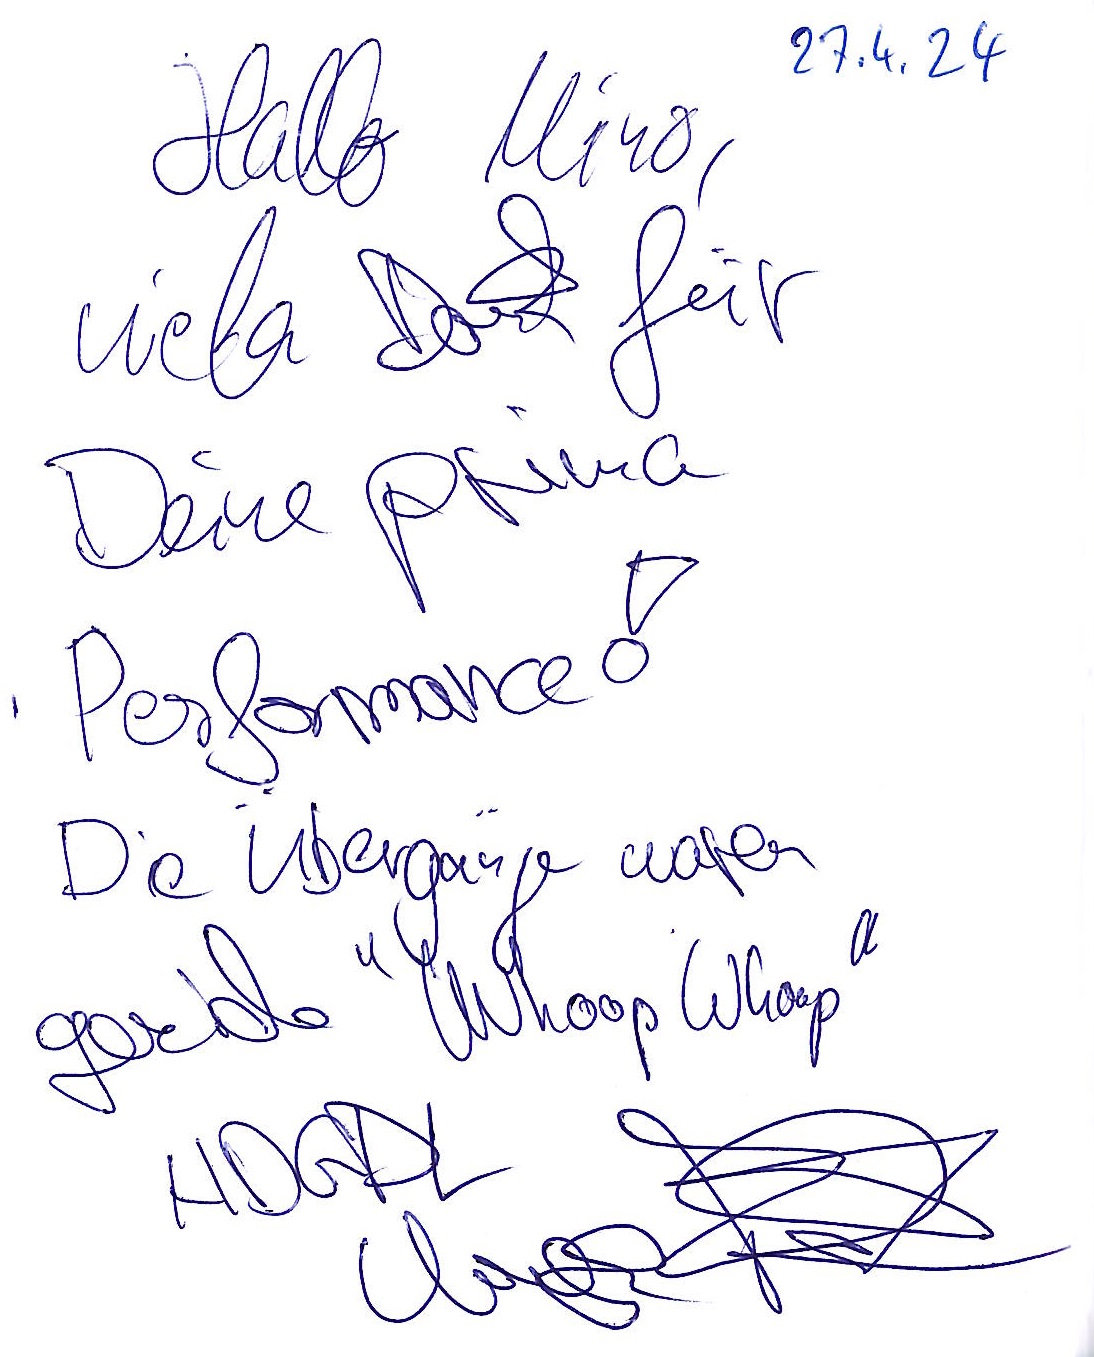 27.4.24
Hallo Miro,
vielen Dank für
Deine prima
Performance!
Die Übergänge waren
gerade "Whoop Whoop"
HDGDL